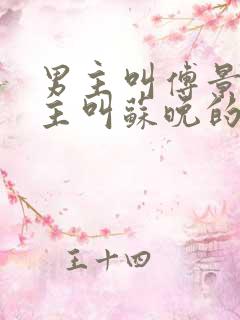 男主叫傅景
主叫蘇晚的
王十四